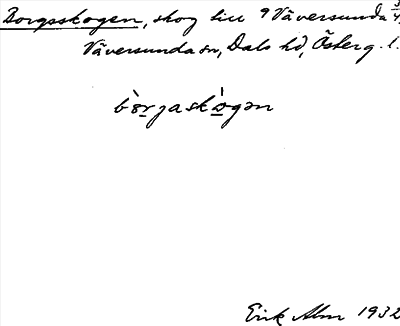 Borgsskogen, skog till 9 Väversunda 3/4
Väversunda sn, Dals hd, Österg. l.
bòrjaskògən
Erik Alm 1932